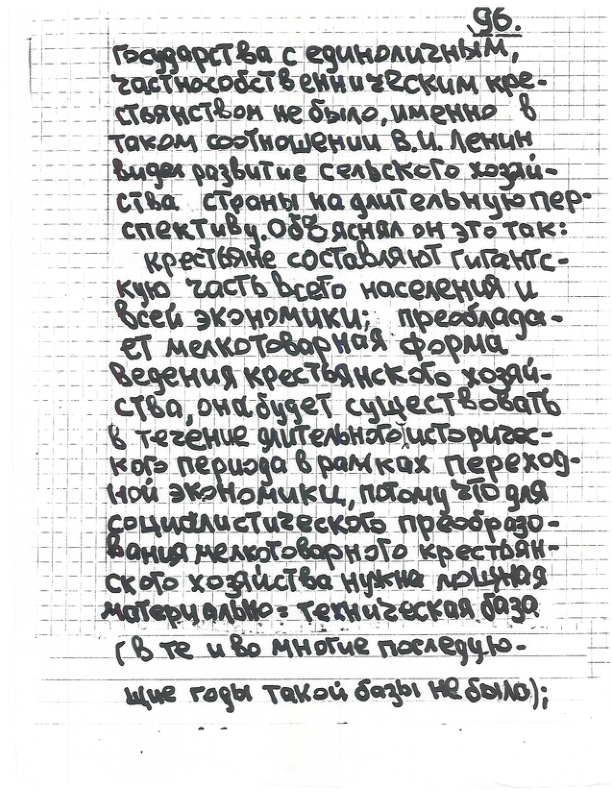 96.
государства с единоличным,
частнособственническим кре-
стьянством не было, именно в
таком соотношении В.И. Ленин
видел развитие сельского хозяй-
ства страны на длительную пер-
спективу. Объяснял он это так:
крестьяне составляют гигантс-
кую часть всего населения и
всей экономики; преоблада-
ет мелкотоварная форма
ведения крестьянского хозяй-
ства, она будет существовать
в течение длительного историчес-
кого периода в рамках переход-
ной экономики, потому что для
социалистического преобразо-
вания мелкотоварного крестьян-
ского хозяйства нужна мощная
материально=техническая база
(в те и во многие последую-
щие годы такой базы не было);